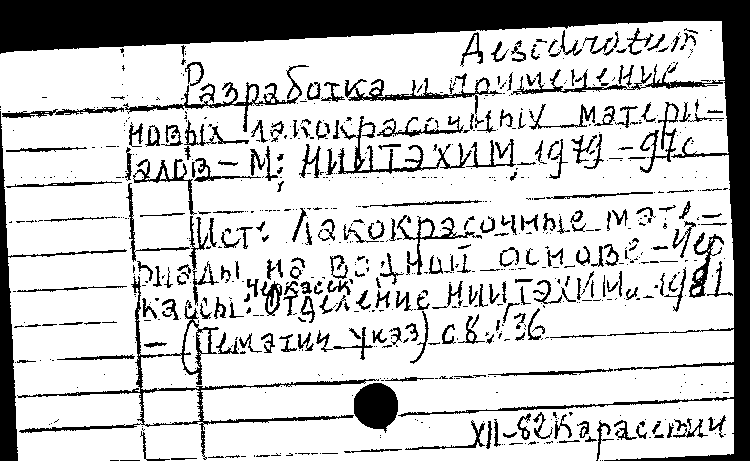 Desideratum
Разработка и применение
новых лакокрасочных матери-
алов – М; НИИТЭХИМ, 1979 – 97с
Ист: Лакокрасочные мате-
риалы на водной основе – Чер
черкасск
кассы: Отделение НИИТЭХИМа 1981
– (Тематич указ) с 8 √36
XII-82 Карасевич